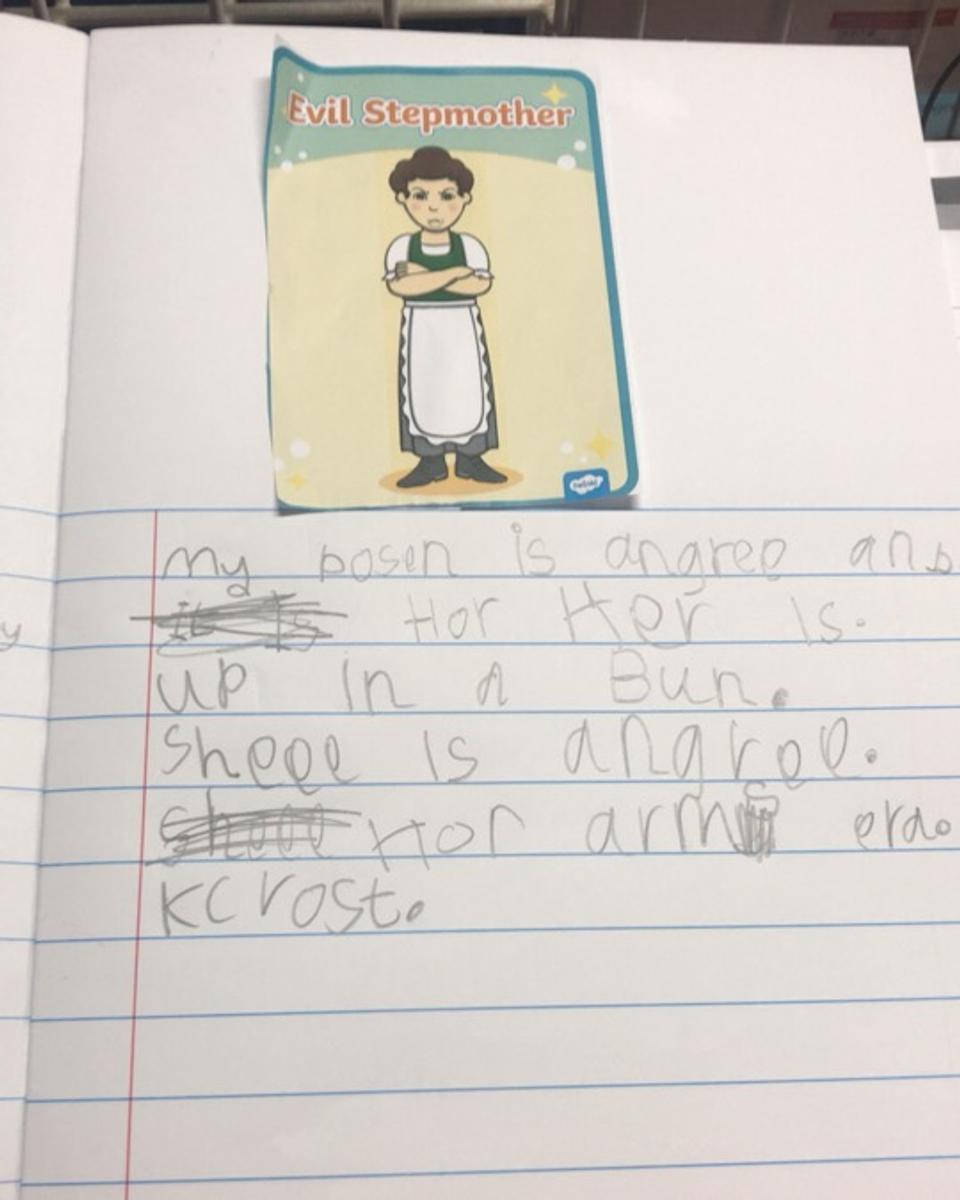 Evil Stepmother
twinkl
y
my posen is angree anb
Hor Her is.
up in a Bun.
sheee is angree.
Hor arms era.
Kcrost.